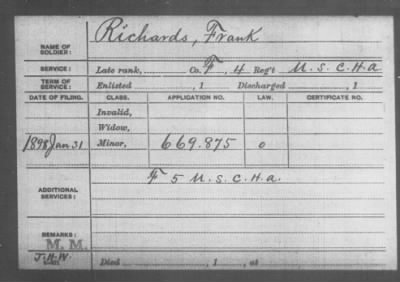 NAME OF SOLDIER: Richards, Frank
SERVICE: Late rank, Co. F, 4 Reg't U. S. C. H. A
TERM OF SERVICE: Enlisted , 1 Discharged , 1
DATE OF FILING. CLASS. APPLICATION NO. LAW. CERTIFICATE NO.
Invalid,
Widow,
1898 Jan 31 Minor, 669.875 0
ADDITIONAL SERVICES: F 5 U. S. C. H. A.
REMARKS:
M. M.
J.H.W.
Died , 1 , at